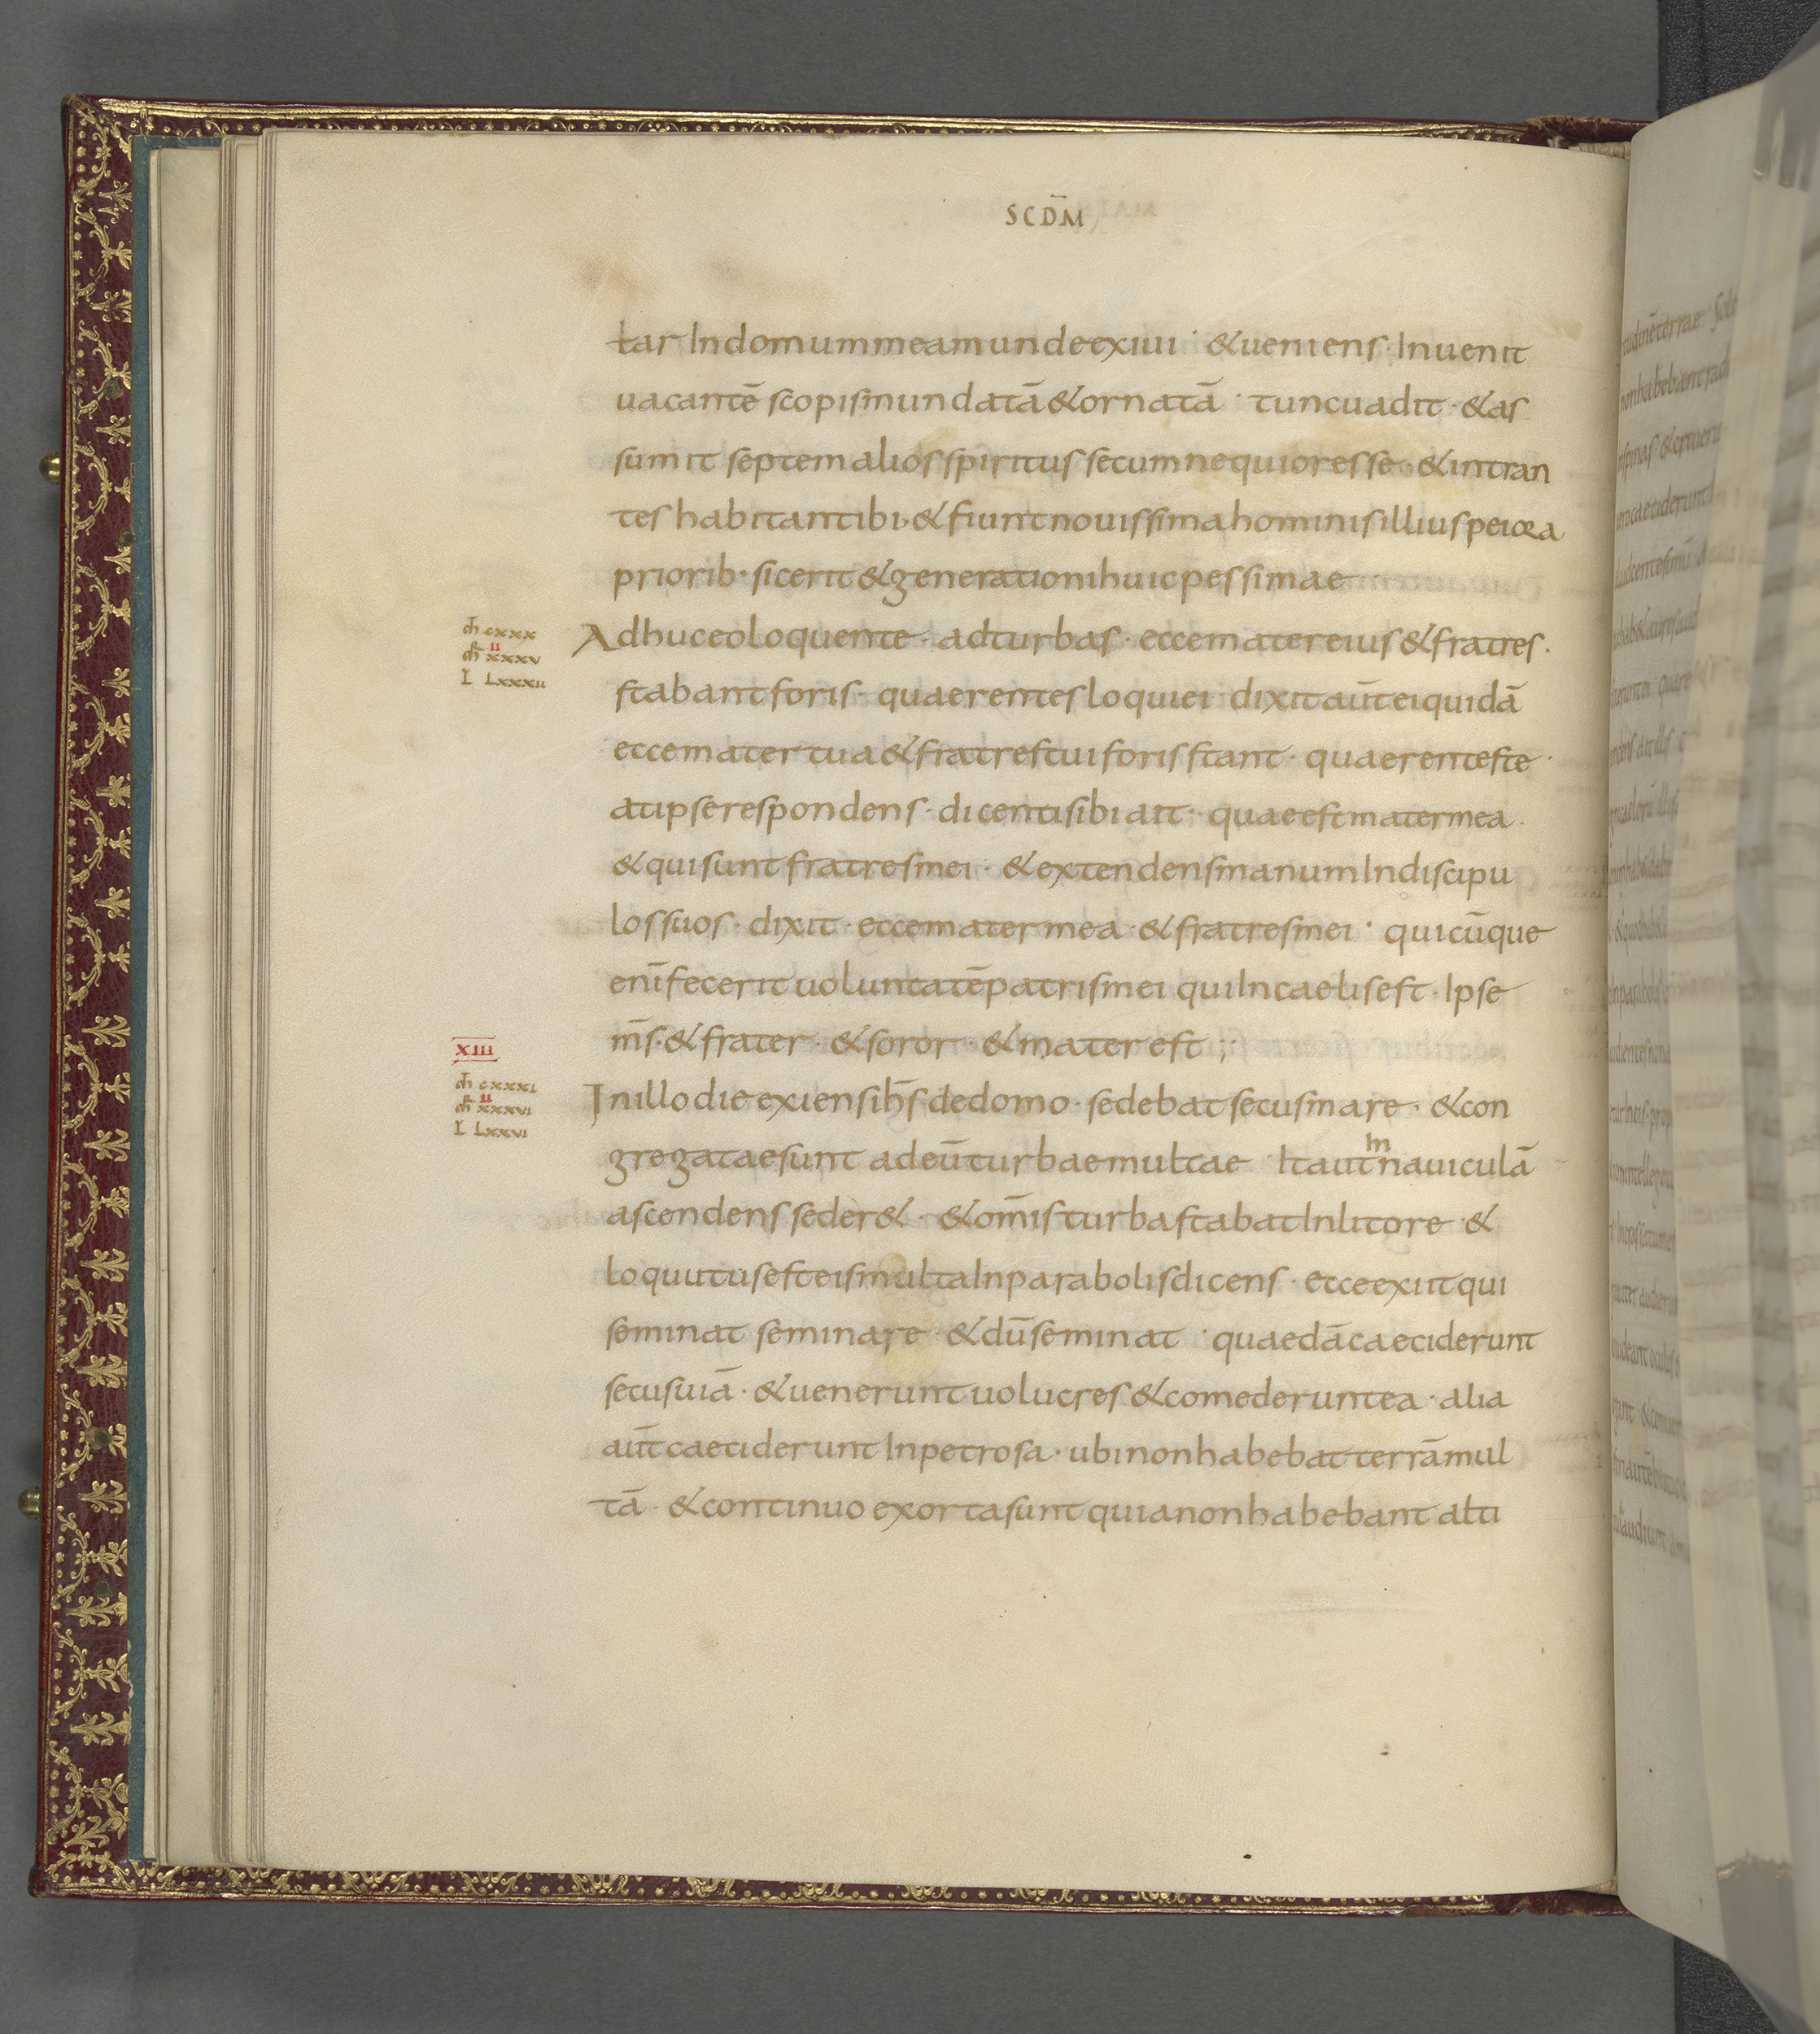 SCDM̄
tar In domum meam unde exiui · & ueniens · Inuenit
uacantē scopis mundatā & ornatā · tunc uadit · & as
sumit septem alios spiritus secum nequiores se · & intran
tes habitant ibi · & fiunt nouissima hominis illius peiora
priorib · sic erit & generationi huic pessimae
Adhuc eo loquente · ad turbas · ecce mater eius & fratres ·
stabant foris · quaerentes loqui ei · dixit aūt ei quidā
ecce mater tua & fratres tui foris stant · quaerentes te ·
at ipse respondens · dicenti sibi ait · quae est mater mea ·
& qui sunt fratres mei · & extendens manum In discipu
los suos · dixit · ecce mater mea · & fratres mei · quicūque
enī fecerit uoluntatē patris mei qui In caelis est · Ipse
m̄s · & frater · & soror · & mater est ;
XIII
In illo die exiens ih̄s de domo · sedebat secus mare · & con
gregatae sunt ad eū turbae multae · Ita ut In nauiculā
ascendens seder& · & om̄is turba stabat In litore · &
loquutus est eis multa In parabolis dicens · ecce exiit qui
seminat seminare · & dū seminat · quaedā caeciderunt
secus uiā · & uenerunt uolucres & comederunt ea · alia
aūt caeciderunt In petrosa · ubi non habebat terrā mul
tā · & continuo exorta sunt quia non habebant alti